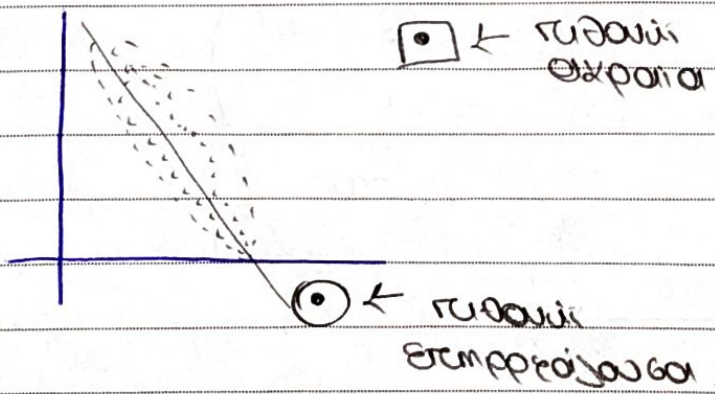 πιθανή
ακραία
πιθανή
επηρρεάζουσα